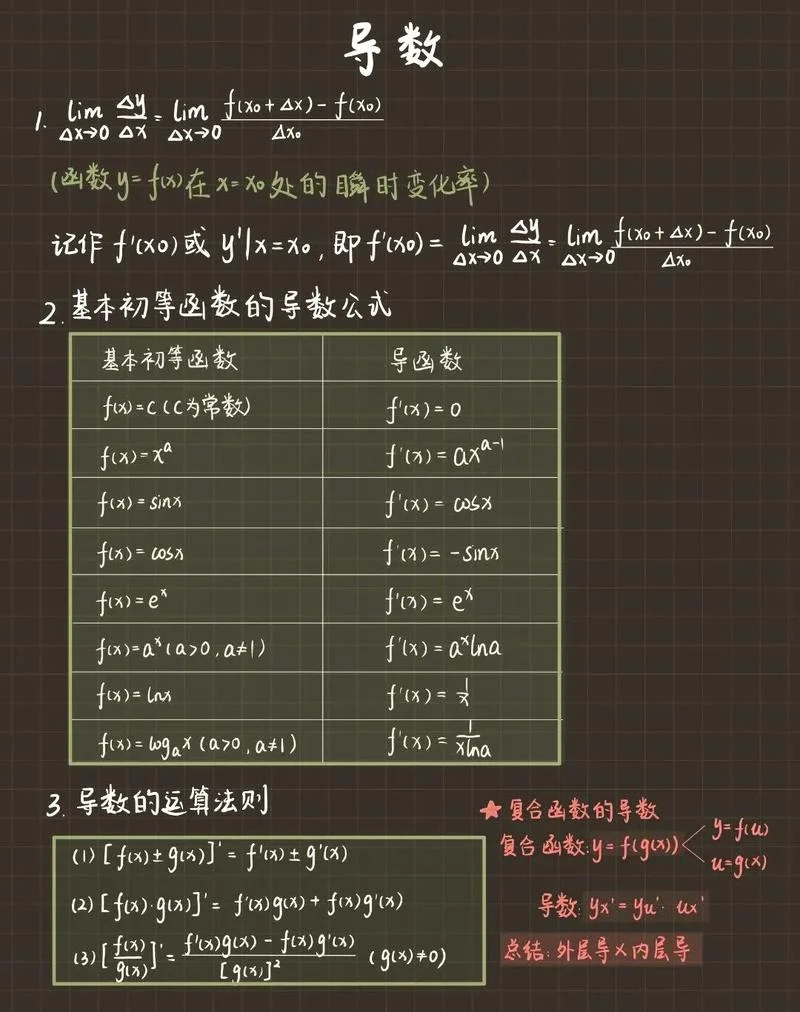 导数
1. lim Δx→0 Δy/Δx = lim Δx→0 (f(x₀+Δx)-f(x₀))/Δx₀
(函数y=f(x)在x=x₀处的瞬时变化率)
记作f'(x₀)或y'|x=x₀,即f'(x₀)= lim Δx→0 Δy/Δx = lim Δx→0 (f(x₀+Δx)-f(x₀))/Δx₀
2. 基本初等函数的导数公式
基本初等函数 导函数
f(x)=C(C为常数) f'(x)=0
f(x)=xᵃ f'(x)=axᵃ⁻¹
f(x)=sinx f'(x)=cosx
f(x)=cosx f'(x)=-sinx
f(x)=eˣ f'(x)=eˣ
f(x)=aˣ(a>0,a≠1) f'(x)=aˣlna
f(x)=lnx f'(x)=1/x
f(x)=logₐx(a>0,a≠1) f'(x)=1/xlna
3. 导数的运算法则
(1)[f(x)±g(x)]'=f'(x)±g'(x)
(2)[f(x)·g(x)]'=f'(x)g(x)+f(x)g'(x)
(3)[f(x)/g(x)]'=(f'(x)g(x)-f(x)g'(x))/[g(x)]² (g(x)≠0)
★复合函数的导数
复合函数:y=f(g(x))
y=f(u)
u=g(x)
导数:yx'=yu'·ux'
总结:外层导×内层导